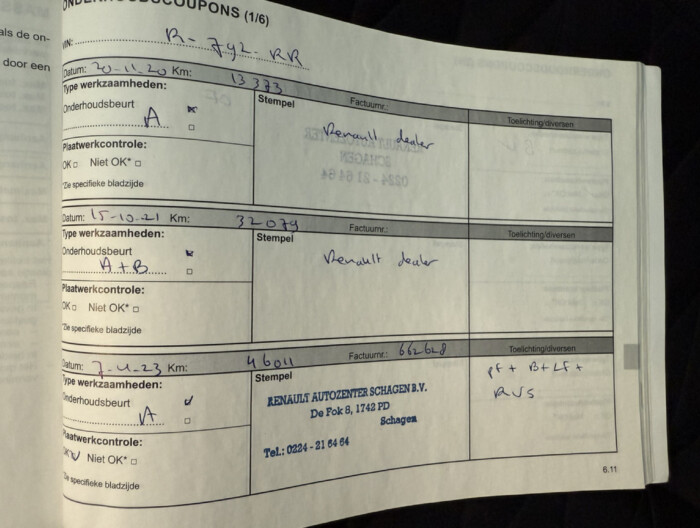 ONDERHOUDSCOUPONS (1/6)
als de on-
door een
VIN: R-792-RR
Datum: 20-11-20 Km: 13373 Factuurnr.: Toelichting/diversen
Type werkzaamheden: Stempel
Onderhoudsbeurt
A
Renault dealer
Plaatwerkcontrole:
OK □ Niet OK* □
*Zie specifieke bladzijde
Datum: 15-10-21 Km: 32079 Factuurnr.: Toelichting/diversen
Type werkzaamheden: Stempel
Onderhoudsbeurt
A+B
Renault dealer
Plaatwerkcontrole:
OK □ Niet OK* □
*Zie specifieke bladzijde
Datum: 7-4-23 Km: 46011 Factuurnr.: 662628 Toelichting/diversen
Type werkzaamheden: Stempel
Onderhoudsbeurt
A
RENAULT AUTOZENTER SCHAGEN B.V.
De Fok 8, 1742 PD
Schagen
Tel.: 0224 - 21 64 64
PF + B + LF +
RVS
Plaatwerkcontrole:
OK Niet OK* □
*Zie specifieke bladzijde
6.11